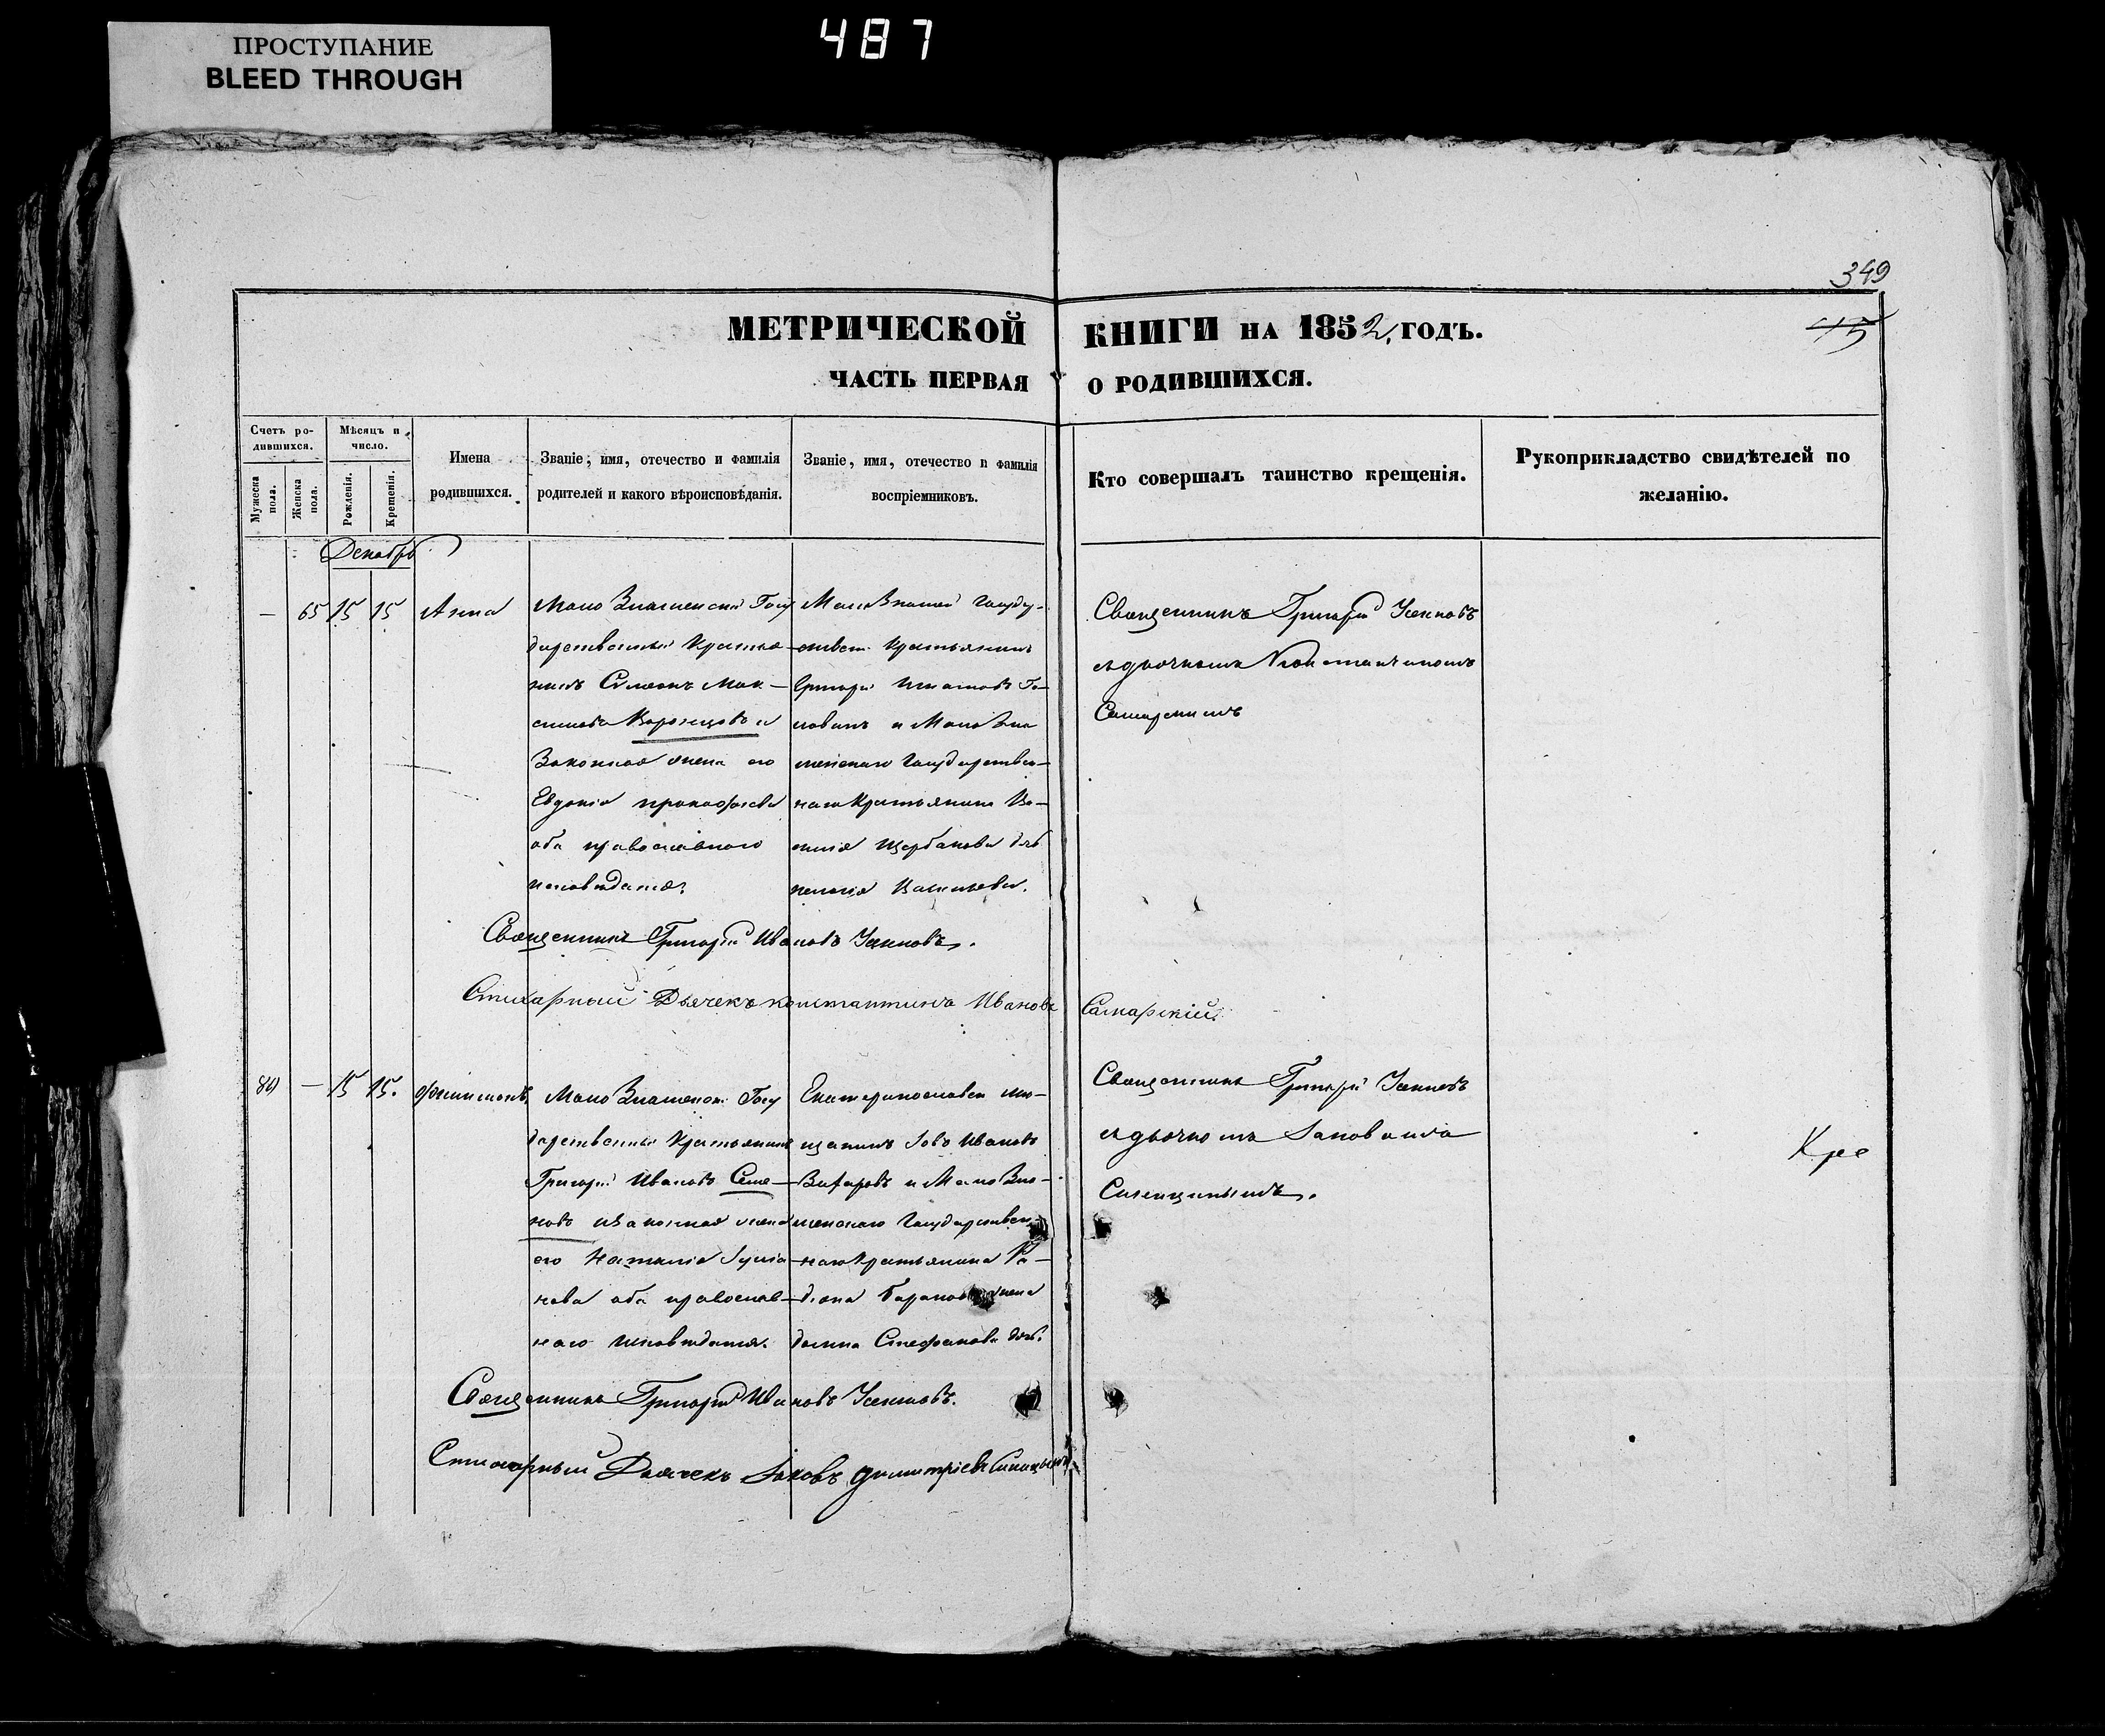 ПРОСТУПАНИЕ
BLEED THROUGH
487
349
МЕТРИЧЕСКОЙ КНИГИ НА 1852 ГОДЪ.
45
ЧАСТЬ ПЕРВАЯ О РОДИВШИХСЯ.
Счетъ ро-
дившихся.
Мужеска пола.
Женска пола.
Мѣсяцъ и
число.
Рожденія.
Крещенія.
Имена
родившихся.
Званіе, имя, отечество и фамилія
родителей и какого вѣроисповѣданія.
Званіе, имя, отечество и фамилія
воспріемниковъ.
Кто совершалъ таинство крещенія.
Рукоприкладство свидѣтелей по
желанію.
Декабрь
— 65 15 15 Анна
Мало Знаменскій Госу
дарственный Крестья-
нинъ Симеонъ Мак-
симовъ Воронцовъ и
Законная жена его
Евдокія Прокофіева
оба православнаго
исповѣданія.
Григорій Игнатовъ Го-
ловинъ и Мало Зна
менскаго Государствен-
наго Крестьянина Ва-
силія Щербакова
Васильева.
Священникъ Григорій Усеновъ
съ дьячкомъ Константиномъ
Самарскимъ
Священникъ Григорій Ивановъ Усеновъ.
Стихарный Дьячекъ Константинъ Ивановъ Самарскій
80 — 15 15. Филимонъ
Мало Знаменск. Госу
дарственный Крестьянинъ
Григорій Ивановъ Семе-
новъ и Законная жена
его Наталія Іуліа-
нова оба православ-
наго исповѣданія.
Екатеринославск мѣ-
щанинъ Іовъ Ивановъ
и Мало Зна-
менскаго Государствен
наго Крестьянина Ро-
діона жена
Домна Стефанова
Священникъ Григорій Усеновъ
съ дьячкомъ Іаковомъ
Синицынымъ.
Кре
Священникъ Григорій Ивановъ Усеновъ.
Стихарный Дьячекъ Іаковъ Димитріевъ Синицынъ